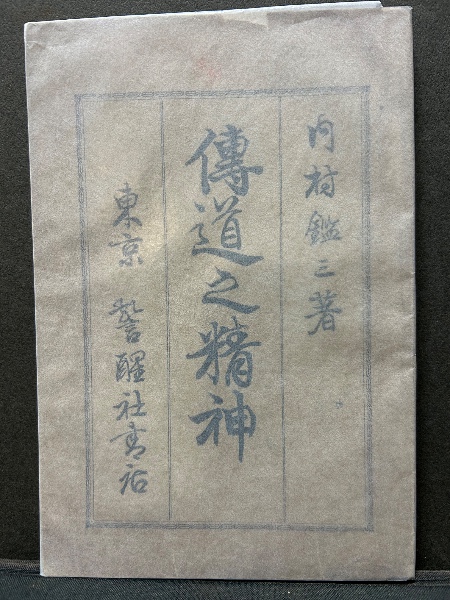 内村鑑三著
傳道之精神
東京 警醒社書店